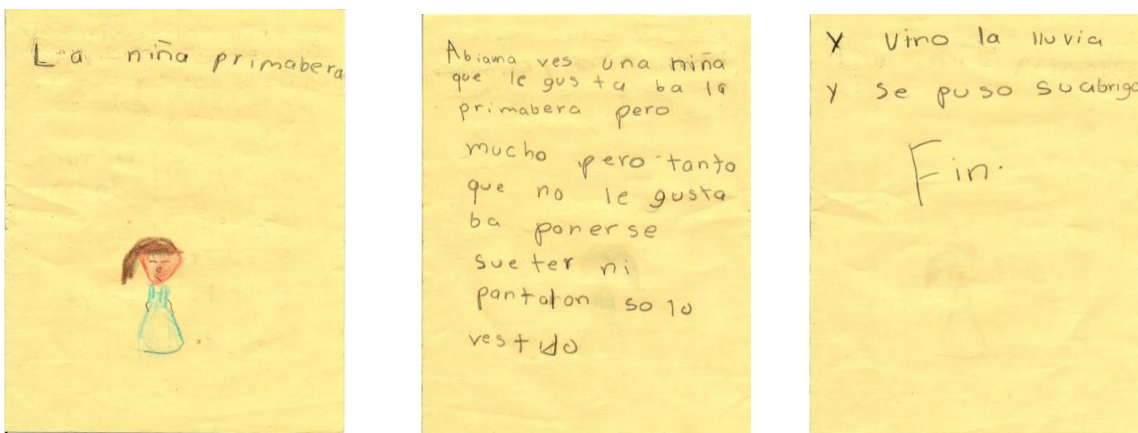 La niña primabera
Abiama ves una niña
que le gus ta ba la
primabera pero
mucho pero tanto
que no le gusta
ba ponerse
sueter ni
pantalon so lo
vestido
Y vino la lluvia
y se puso suabrigo
Fin.